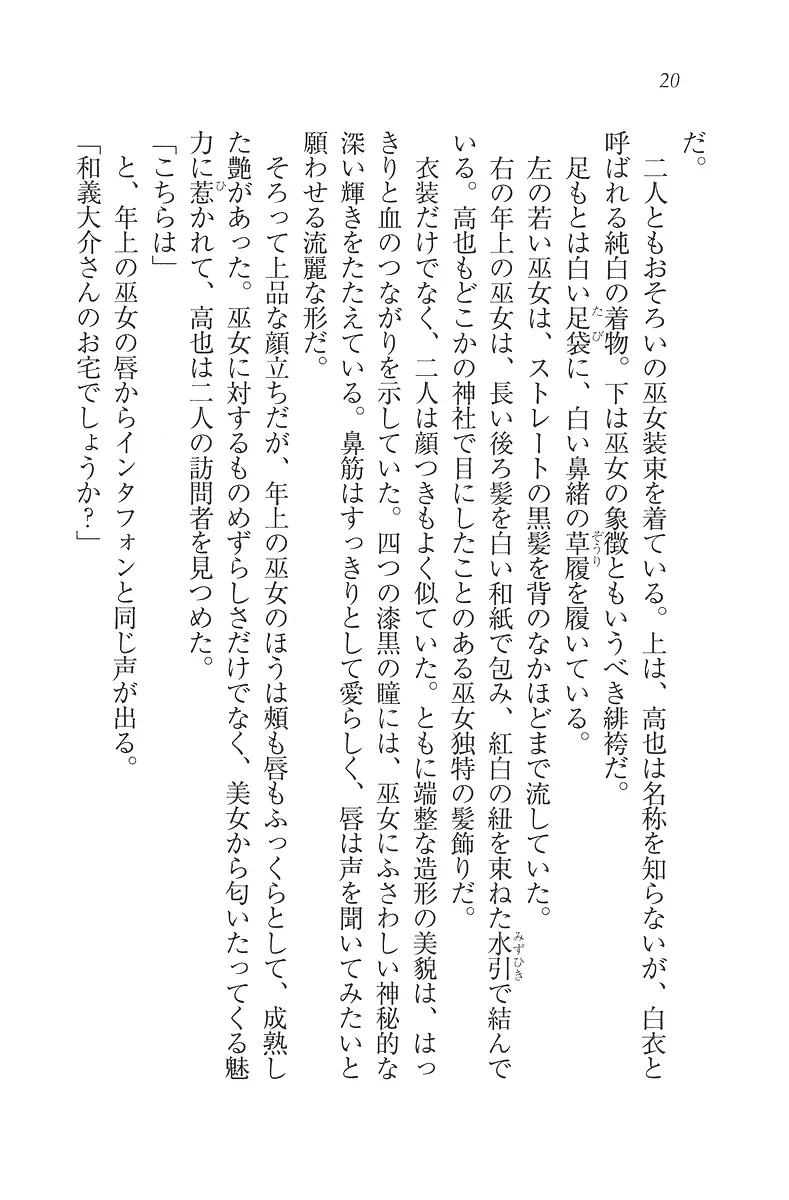 20
だ。
二人ともおそろいの巫女装束を着ている。上は、高也は名称を知らないが、白衣と
呼ばれる純白の着物。下は巫女の象徴ともいうべき緋袴だ。
足もとは白い足袋に、白い鼻緒の草履を履いている。
左の若い巫女は、ストレートの黒髪を背のなかほどまで流していた。
右の年上の巫女は、長い後ろ髪を白い和紙で包み、紅白の紐を束ねた水引で結んで
いる。高也もどこかの神社で目にしたことのある巫女独特の髪飾りだ。
衣装だけでなく、二人は顔つきもよく似ていた。ともに端整な造形の美貌は、はっ
きりと血のつながりを示していた。四つの漆黒の瞳には、巫女にふさわしい神秘的な
深い輝きをたたえている。鼻筋はすっきりとして愛らしく、唇は声を聞いてみたいと
願わせる流麗な形だ。
そろって上品な顔立ちだが、年上の巫女のほうは頰も唇もふっくらとして、成熟し
た艶があった。巫女に対するものめずらしさだけでなく、美女から匂いたってくる魅
力に惹かれて、高也は二人の訪問者を見つめた。
「こちらは」
と、年上の巫女の唇からインタフォンと同じ声が出る。
「和義大介さんのお宅でしょうか？」